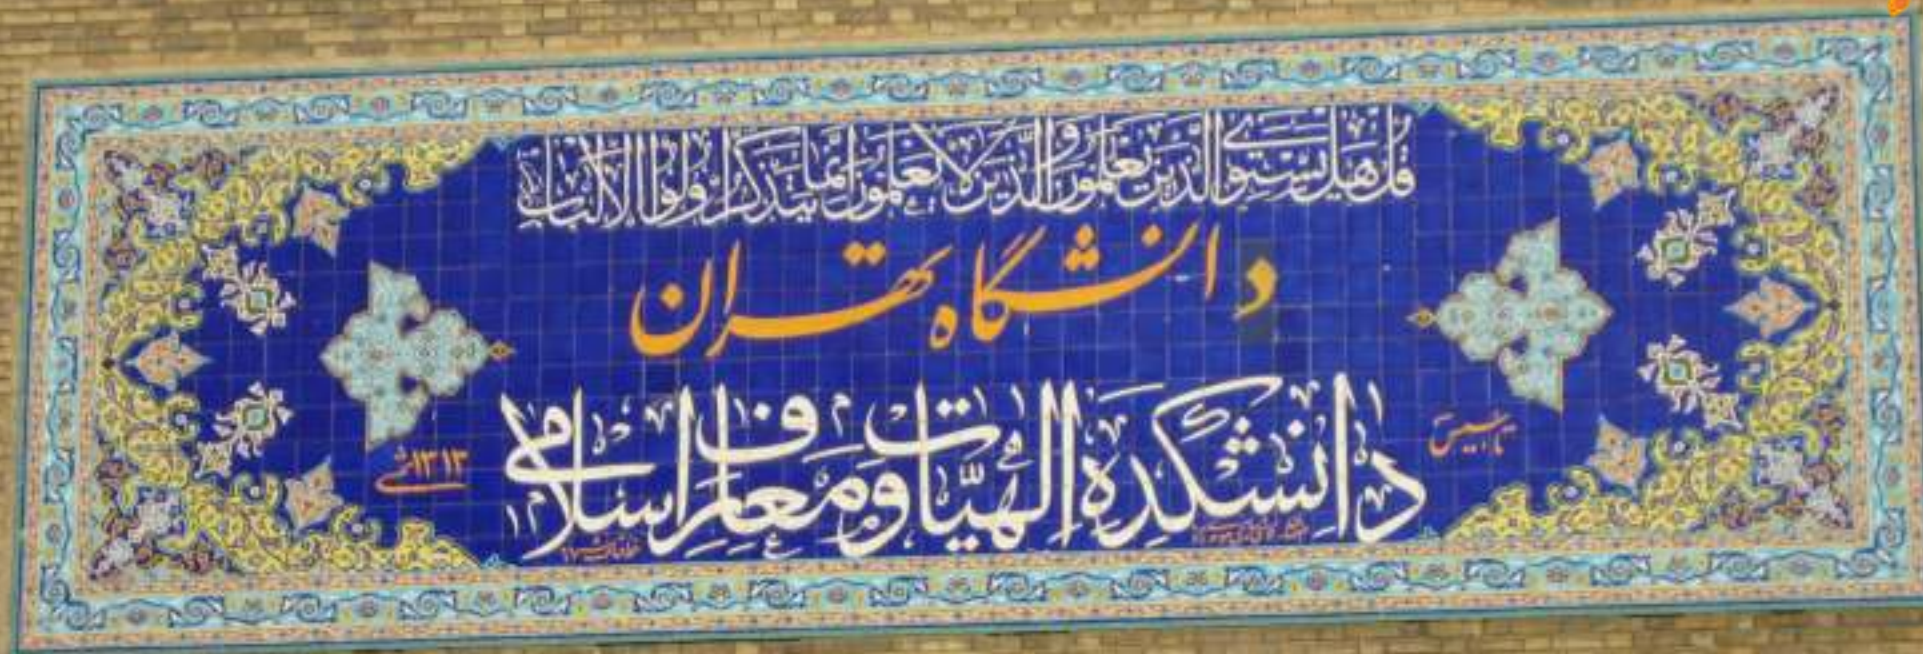 قل هل یستوی الذین یعلمون والذین لا یعلمون انما یتذکر اولوا الالباب
دانشگاه تهران
دانشکده الهیّات و معارف اسلامی
تاسیس
۱۳۱۳ش